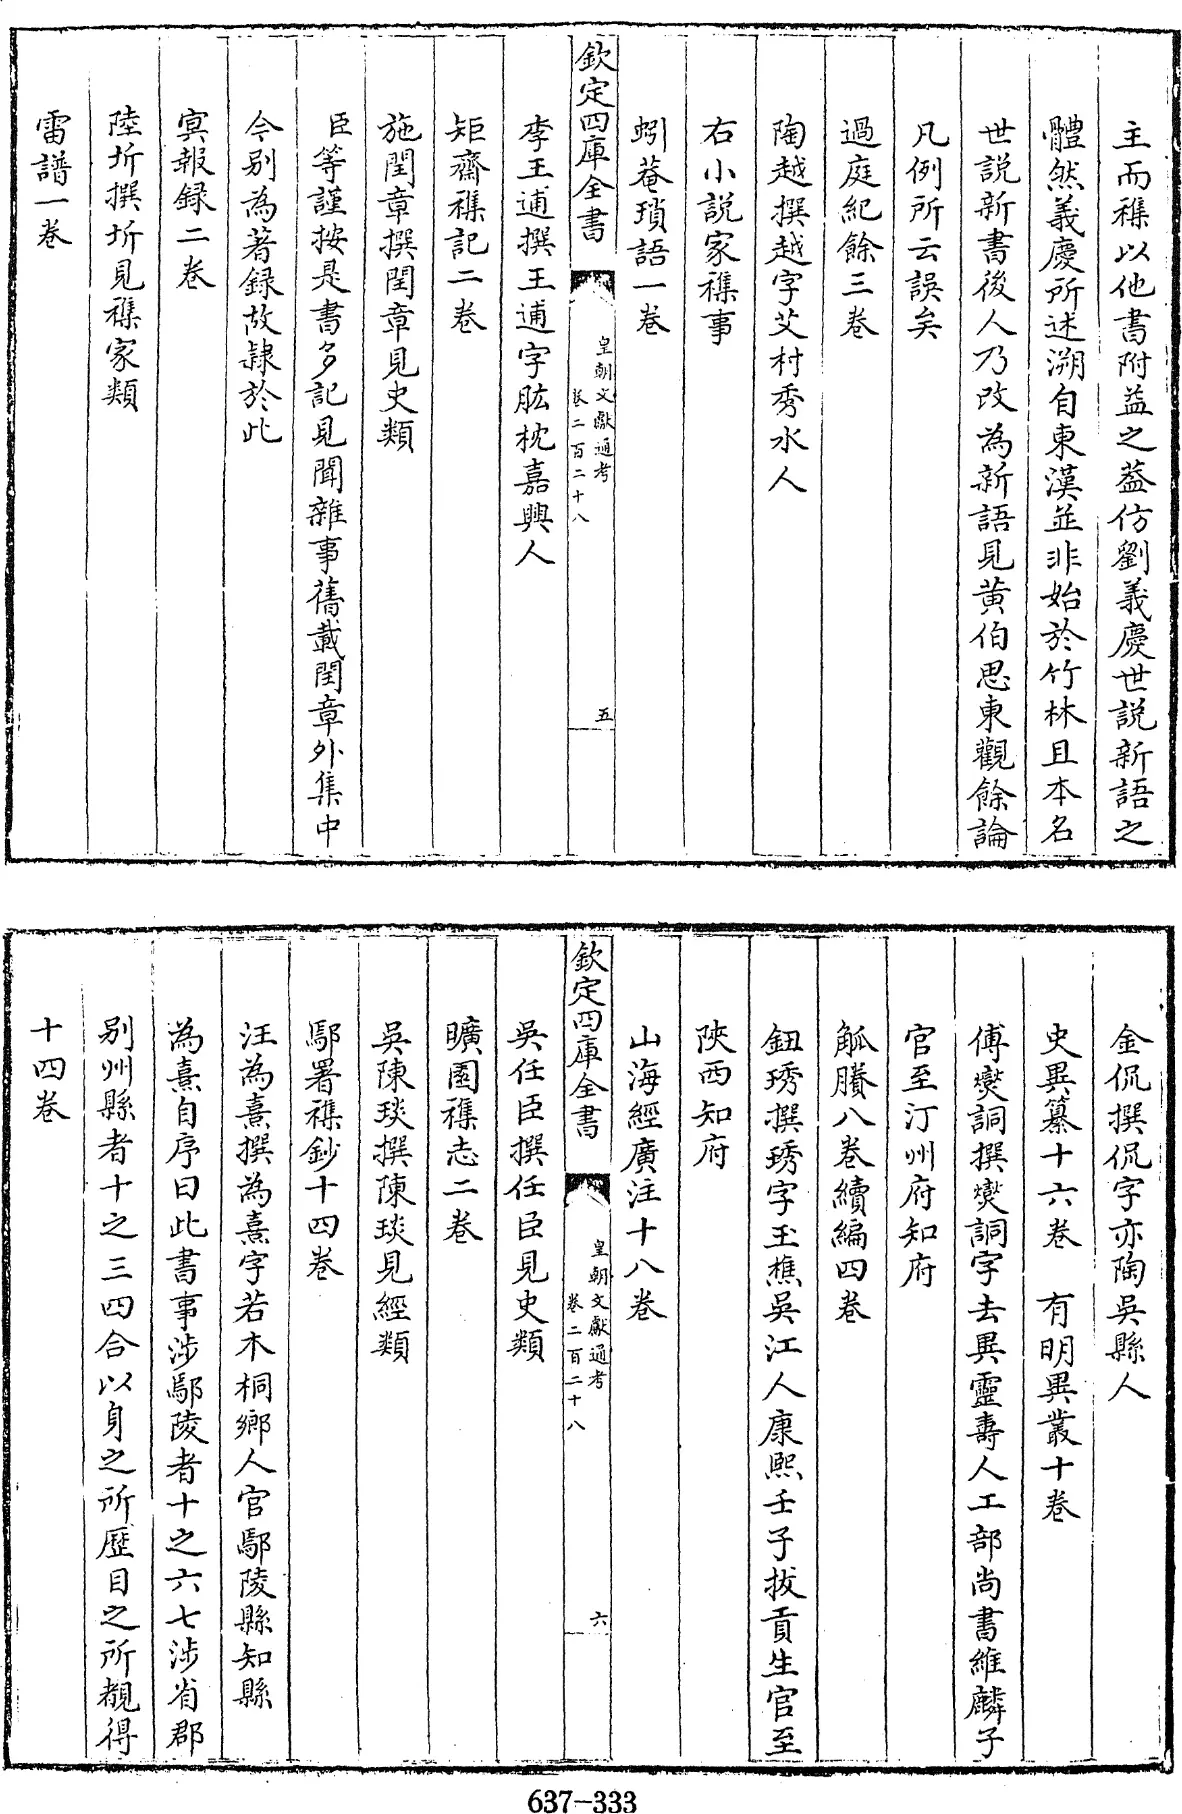 主而襍以他書附益之葢仿劉義慶世説新語之
體然義慶所述溯自東漢並非始於竹林且本名
世説新書後人乃改為新語見黄伯思東觀餘論
凡例所云誤矣
過庭紀餘三卷
陶越撰越字艾村秀水人
右小説家襍事
蚓菴瑣語一卷
欽定四庫全書
皇朝文獻通考
卷二百二十八
五
李王逋撰王逋字肱枕嘉興人
矩齋襍記二卷
施閏章撰閏章見史類
臣等謹按是書多記見聞雜事舊載閏章外集中
今别為著録故隸於此
冥報録二卷
陸圻撰圻見襍家類
雷譜一卷
金侃撰侃字亦陶吳縣人
史異纂十六卷　有明異叢十卷
傅爕詷撰爕詷字去異靈壽人工部尚書維麟子
官至汀州府知府
觚賸八卷續編四卷
鈕琇撰琇字玉樵吳江人康熙壬子拔貢生官至
陜西知府
山海經廣注十八卷
欽定四庫全書
皇朝文獻通考
卷二百二十八
六
吳任臣撰任臣見史類
曠園襍志二卷
吳陳琰撰陳琰見經類
鄢署襍鈔十四卷
汪為熹撰為熹字若木桐鄉人官鄢陵縣知縣
為熹自序曰此書事涉鄢陵者十之六七涉省郡
别州縣者十之三四合以身之所歷目之所覩得
十四卷
637-333